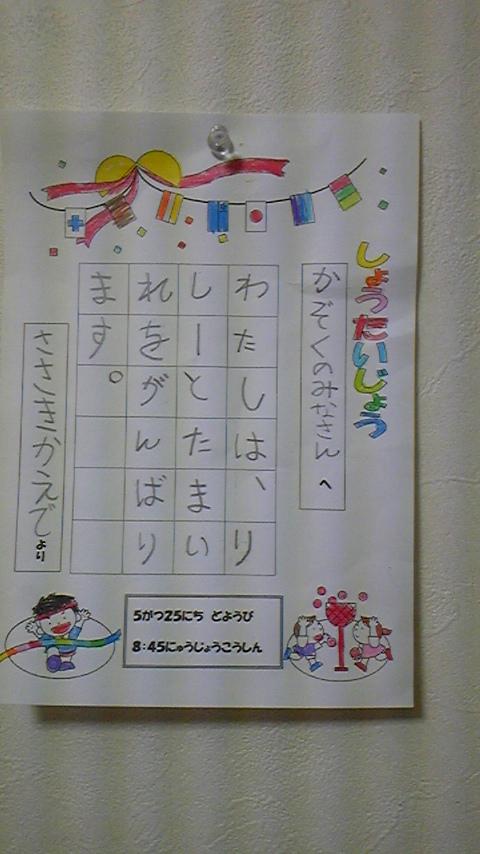 しょうたいじょう
かぞくのみなさんへ
わたしは、り
しーとたまい
れをがんばり
ます。
ささきかえでより
5がつ25にち どようび
8:45にゅうじょうこうしん